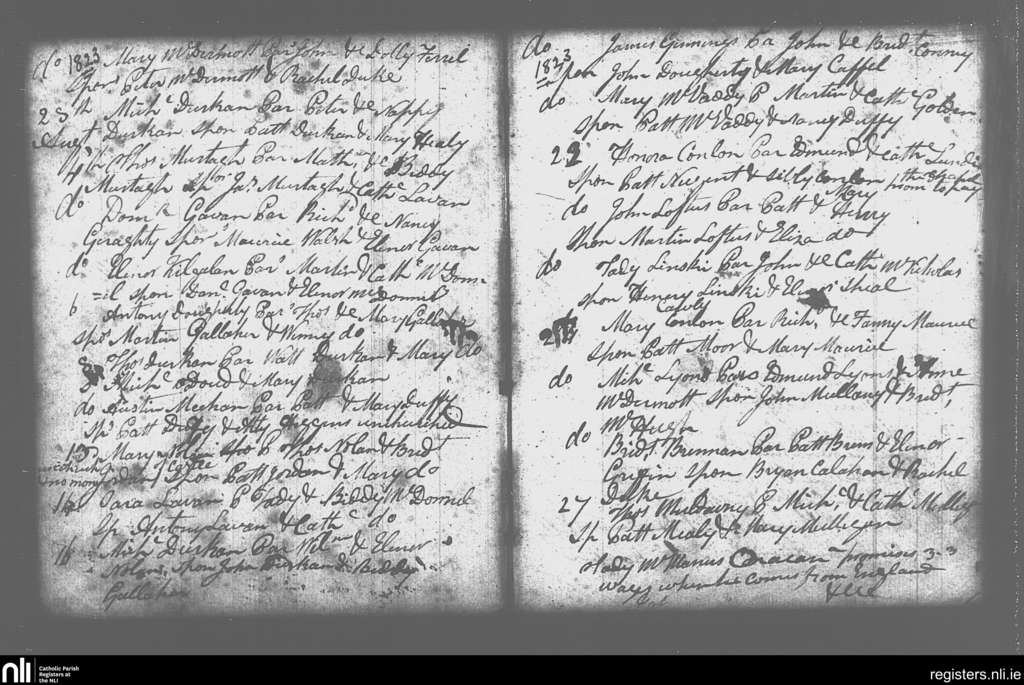 do 1823 Mary McDermott Par John & Dolly Ferril
Spor Peter McDermott & Rachel Duke
23 th Michl Durkan Par Peter &
Augt Durkan Spon Patt Durkan & Mary Healy
4th Thos Murtagh Par Mathw & Biddy
Murtagh Spor Jas Murtagh & Cathe Lavan
do Domk Gavan Par Richd & Nancy
Geraghty Spor Maurice Walsh & Elenor Gavan
do Elenor Kilgalan Par Martin & Cath McDonn
6 =il Spon Danl Gavan & Elenor McDonnil
Antony Dougherty Par Thos & Mary Gallaher
Spor Martin Gallaher & Winny do
8 Thos Durkan Par Watt Durkan & Mary do
S Michl Doud & Mary Durkan
do Austin Meehan Par Patt & Mary Duffy
Sp Patt Duffy & Higgins unchurched
13 Mary Nolan P Thos Nolan & Brid
Jordan Spon Patt Jordan & Mary do
16 Sara Lavan P Tady & Biddy McDonnil
Sp Antony Lavan & Cathe do
16 Michl Durkan Par Willm & Elenor
Nolan Spon John Durkan & Biddy
Gallaher
do James Ginnings Par John & Bridt Conmy
1823
Spon John Dougherty & Mary Caffel
do Mary McVaddy P Martin & Cathe Golden
Spon Patt McVaddy & Nancy Duffy
22 Honora Conlon Par Edmund & Cathe
Spon Patt Nugent & Conlon promd to pay
do John Loftus Par Patt & Mary Henry
Spon Martin Loftus & Eliza do
do Tady Linskie Par John & Cath McNicholas
Spon Henery Linski & Sheal
Mary Conlon Par Richd & Fanny Maurice
Spon Patt Moor & Mary Maurice
do Michl Lyons Par Edmund Lyons & Anne
McDermott Spon John Mullany & Bridt
McHugh
do Bridt Brennan Par Patt Bren & Elinor
Griffin Spon Bryan Calahan & Rachel
Duke
27 Thos Mulvany P Michl & Cathe
Sp Patt Mealy & Mary Mulligan
Tady McManus promises 3-3
ways when he comes from England
nli
Catholic Parish
Registers at
the NLI
registers.nli.ie